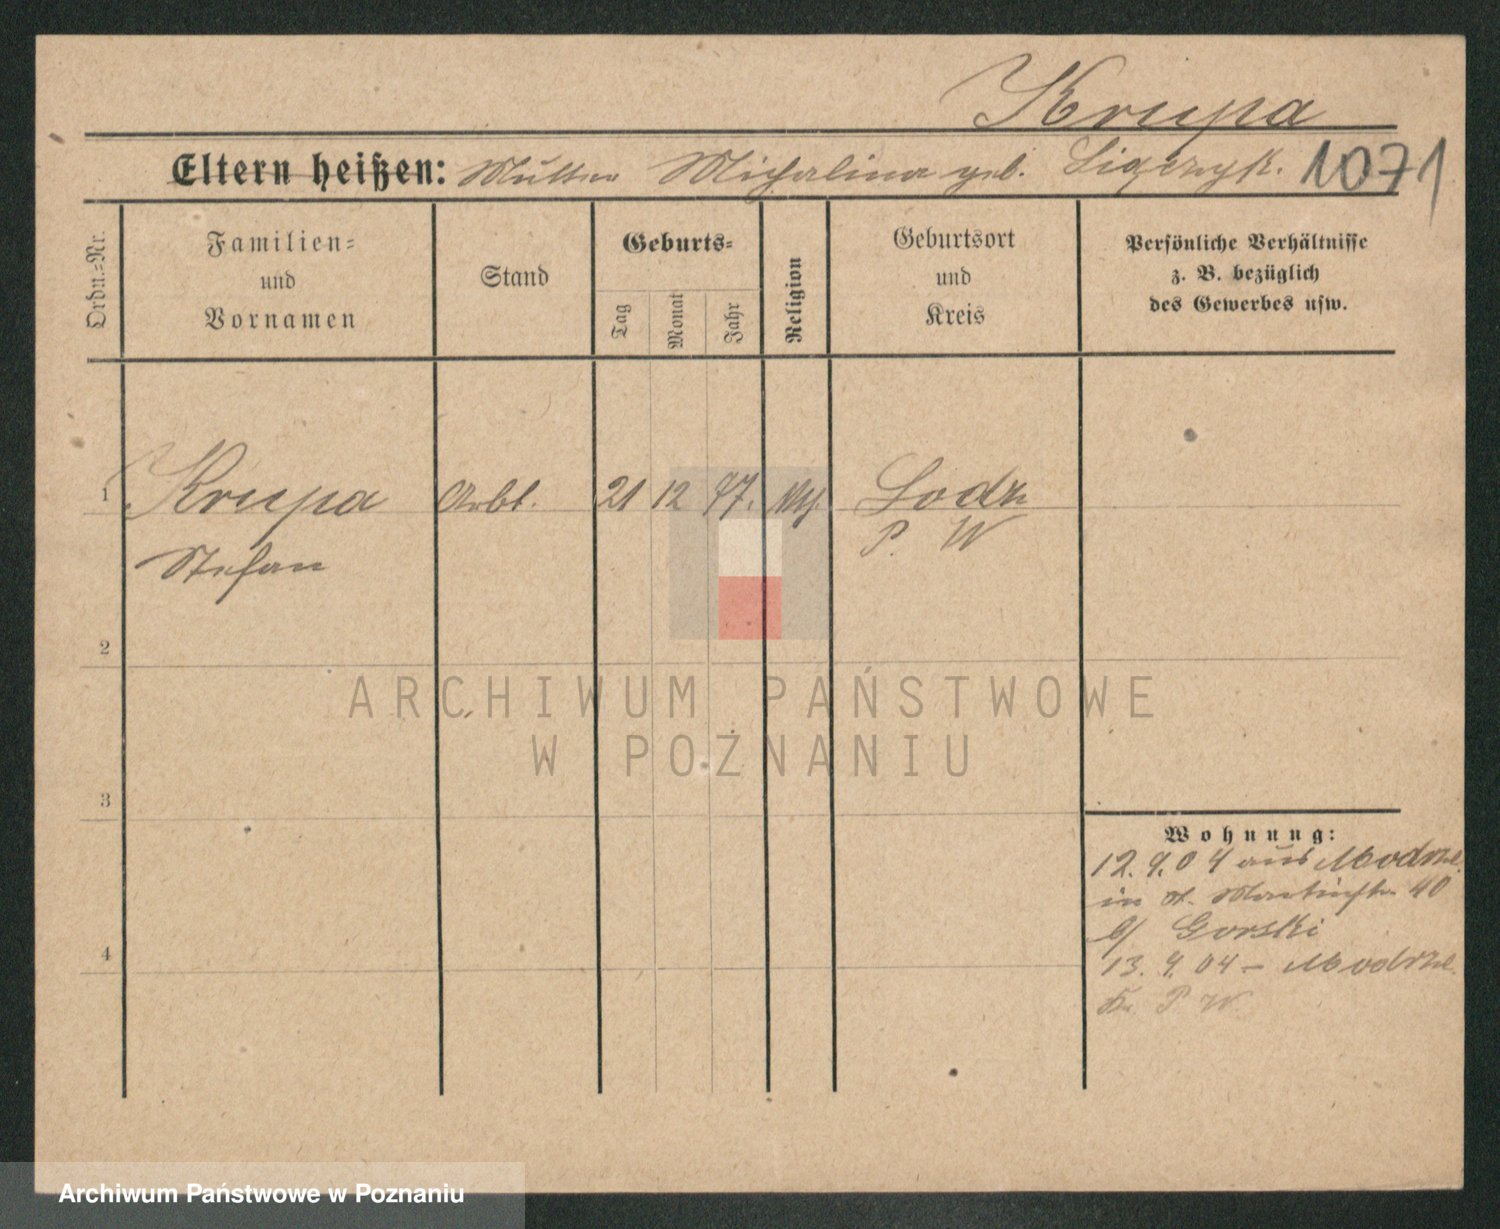 Krupa
Eltern heißen: Mutter Michalina geb. 1071
Ordn.=Nr.
Familien=
und
Vornamen
Stand
Geburts=
Tag
Monat
Jahr
Religion
Geburtsort
und
Kreis
Persönliche Verhältnisse
z. B. bezüglich
des Gewerbes usw.
1 Krupa Arbt. 21 12 77. Lodz
P. W
Stefan
2
ARCHIWUM PAŃSTWOWE
W POZNANIU
3
Wohnung:
12. 9. 04 aus
in St. Martinstr. 40
b/ Gorski
4
13. 9. 04 –
Kr. P W.
Archiwum Państwowe w Poznaniu